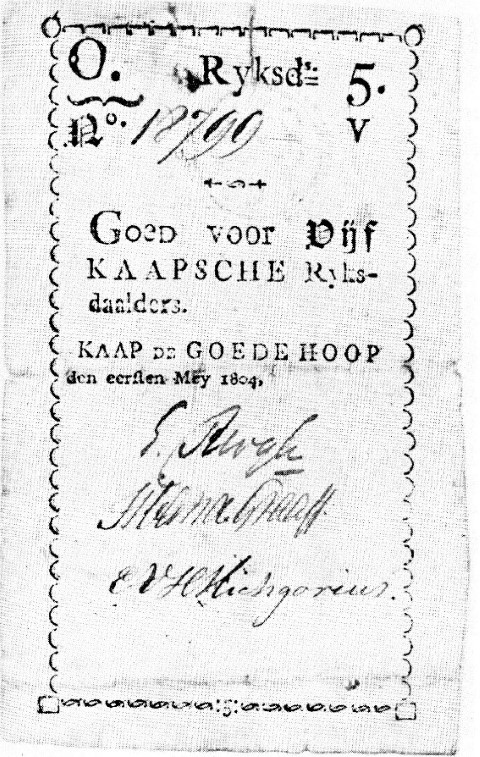 O. Ryksds. 5.
No. 18799 V
GOED VOOR Vijf
KAAPSCHE Ryks-
daalders.
KAAP DE GOEDE HOOP
den eersten Mey 1804,
:5: